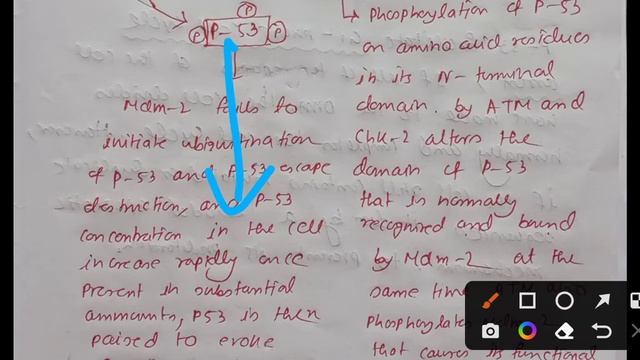 P
P P-53 P
Mdm-2 fails to
initiate ubiquitination
of P-53 and P-53 escape
destruction, and P-53
concentration in the cell
increase rapidly once
present in substantial
ammounts, P53 is then
paised to evoke
↳ phosphorylation of P-53
on amino acid residues
in its N-terminal
domain. by ATM and
Chk-2 alters the
domain of P-53
that is normally
recognized and bound
by Mdm-2 at the
same time
phosphorylates
that causes its functional